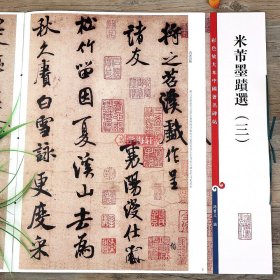 米芾墨蹟選(三)
彩色放大本中國著名碑帖
將之苕溪戲作呈
諸友
襄陽漫仕黻
松竹留因夏溪山去為
秋久賡白雪詠更度采